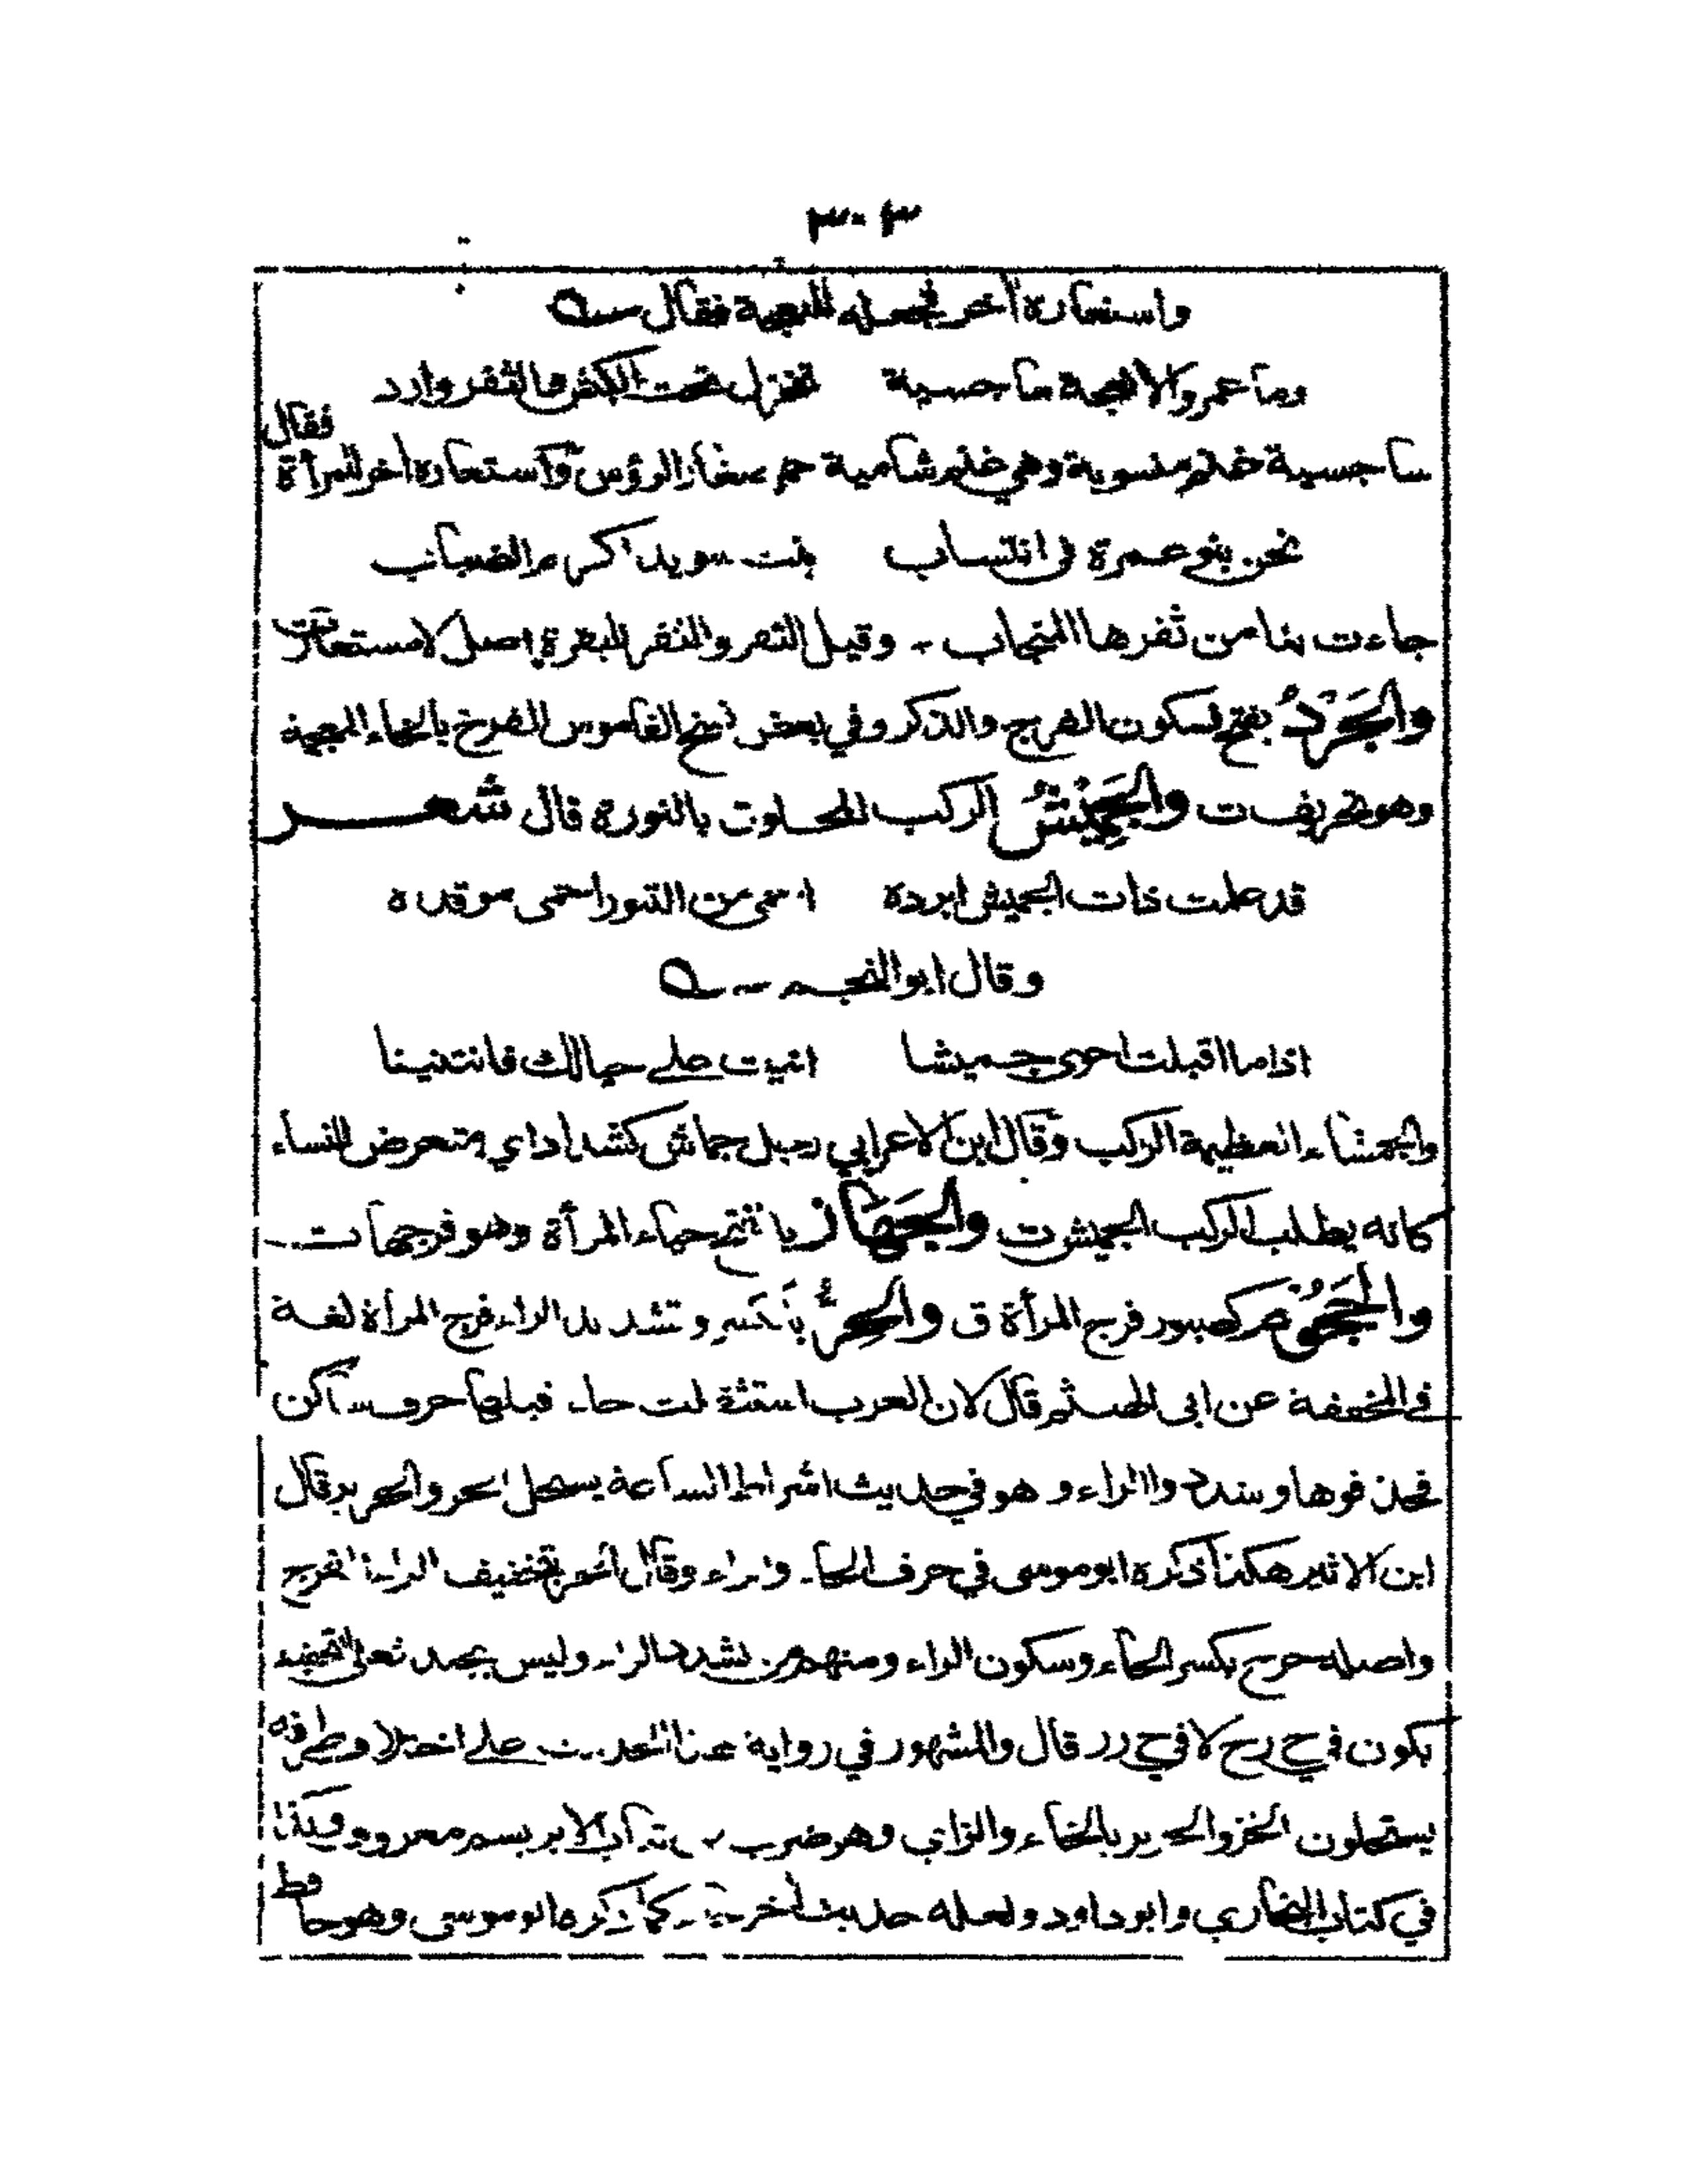 ٣٠٣
واستعاره آخر فجعله للنعجة فقال
وما عمرو الا نعجة ساجسية تخزل تحت الكبش والثفر وارد
فقال
ساجسية غنم منسوبة وهي غنم شامية حمر صغار الرؤس واستعاره آخر للمرأة
نحن بنو عمرة في انتساب بنت سويد اكرم الضباب
جاءت بنا من ثفرها المنجاب - وقيل الثفر والثفر للبقرة اصل لا مستعار ت
والجَرْدُ بفتح فسكون الفرج والذكر وفي بعض نسخ القاموس الفرخ بالخاء المعجمة
وهو تحريف ت والجَمِيْشُ الركب المحلوق بالنورة قال شعر
قد علمت ذات الجميش ابرده احمى من التنور احمى موقده
وقال ابو النجم
اذا ما اقبلت احوى جميشا اتيت على حيالك فانتنينا
والجمشاء العظيمة الركب وقال ابن الاعرابي رجل جماش كشداد اي متعرض للنساء
كانه يطلب الركب الجميش ت والجَهَاز بالفتح حياء المرأة وهو فرجها ت
والجَهُوْم كصبور فرج المرأة ق والحِرُّ بالكسر وتشديد الراء فرج المرأة لغة
في المخففة عن ابي الهيثم قال لان العرب استثقلت حاء قبلها حرف ساكن
فحذفوها وشددوا الراء وهو في حديث اشراط الساعة يستحل الحر والحرير قال
ابن الاثير هكذا ذكره ابو موسى في حرف الحاء والراء وقال الحر بتخفيف الراء الفرج
واصله حرح بكسر الحاء وسكون الراء ومنهم من يشدد الراء وليس بجيد فعلى التخفيف
يكون في ح ر ح لا في ح ر ر قال والمشهور في رواية هذا الحديث على اختلاف طرقه
يستحلون الخز والحرير بالخاء والزاي وهو ضرب من ثياب الابريسم معروف وكذا
في كتاب البخاري وابو داود ولعله حديث آخر كما ذكره ابو موسى وهو حافظ